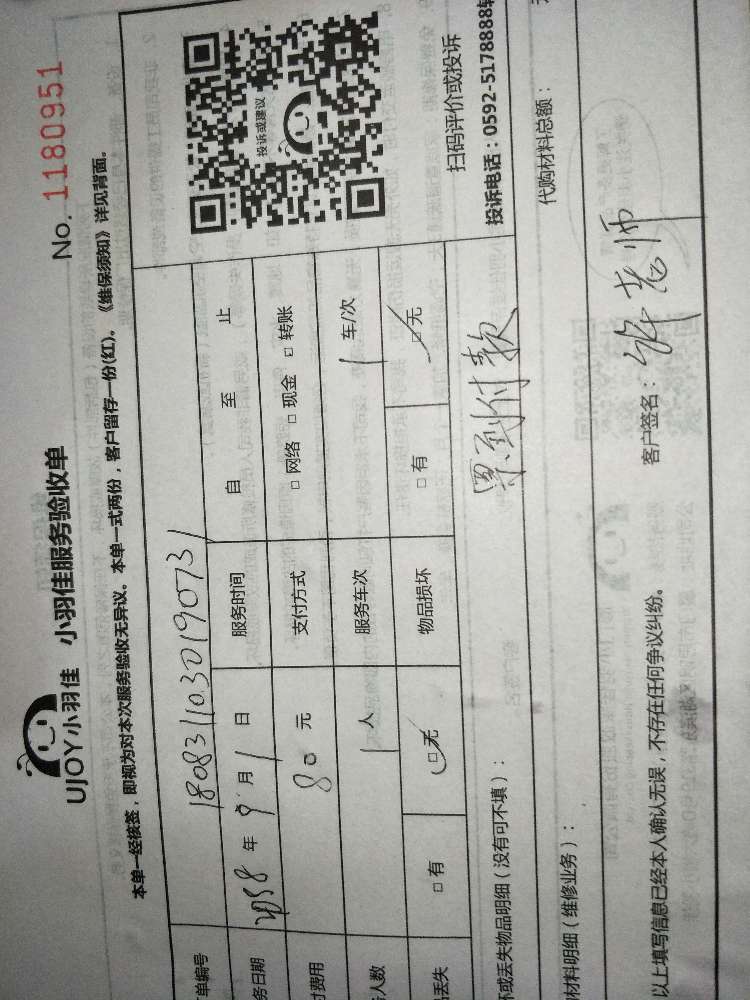 UJOY小羽佳 小羽佳服务验收单 No. 1180951
本单一经核签，即视为对本次服务验收无异议。本单一式两份，客户留存一份(红)。《维保须知》详见背面。
单编号 180831103019073
务日期 年 9 月 1 日 服务时间 自 至 止
付费用 80 元 支付方式 □ 网络 □ 现金 □ 转账
人数 1 人 服务车次 1 车/次
丢失 □ 有 □ 无 物品损坏 □ 有 □ 无
投诉或建议
扫码评价或投诉
投诉电话：0592-5178888转
坏或丢失物品明细（没有可不填）： 票到付款
材料明细（维修业务）： 代购材料总额：
以上填写信息已经本人确认无误，不存在任何争议纠纷。 客户签名： 许老师